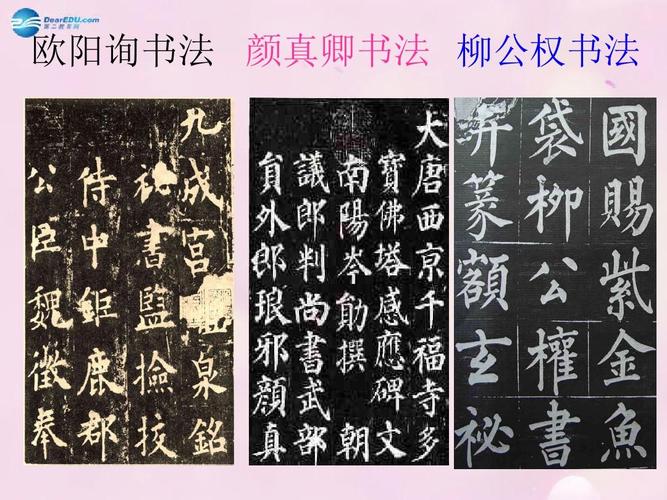 DearEDU.com
第二教育网
欧阳询书法 颜真卿书法 柳公权书法
九成宮泉銘
秘書監檢挍
侍中鉅鹿郡
公臣魏徵奉
大唐西京千福寺多
寶佛塔感應碑文
南陽岑勛撰 朝
議郎判尚書武部
員外郎琅邪顏真
國賜紫金魚
袋柳公權書
并篆額玄祕